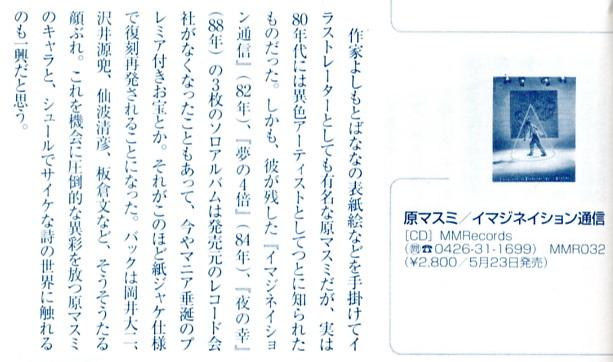 作家よしもとばななの表紙絵などを手掛けてイ
ラストレーターとしても有名な原マスミだが、実は
80年代には異色アーティストとしてつとに知られた
ものだった。しかも、彼が残した『イマジネイショ
ン通信』(82年)、『夢の4倍』(84年)、『夜の幸』
(88年)の3枚のソロアルバムは発売元のレコード会
社がなくなったこともあって、今やマニア垂涎のプ
レミア付きお宝とか。それがこのほど紙ジャケ仕様
で復刻再発されることになった。バックは岡井大二、
沢井源兜、仙波清彦、板倉文など、そうそうたる
顔ぶれ。これを機会に圧倒的な異彩を放つ原マスミ
のキャラと、シュールでサイケな詩の世界に触れる
のも一興だと思う。
原マスミ/イマジネイション通信
[CD] MMRecords
(㈲☎0426-31-1699) MMR032
(¥2,800/5月23日発売)